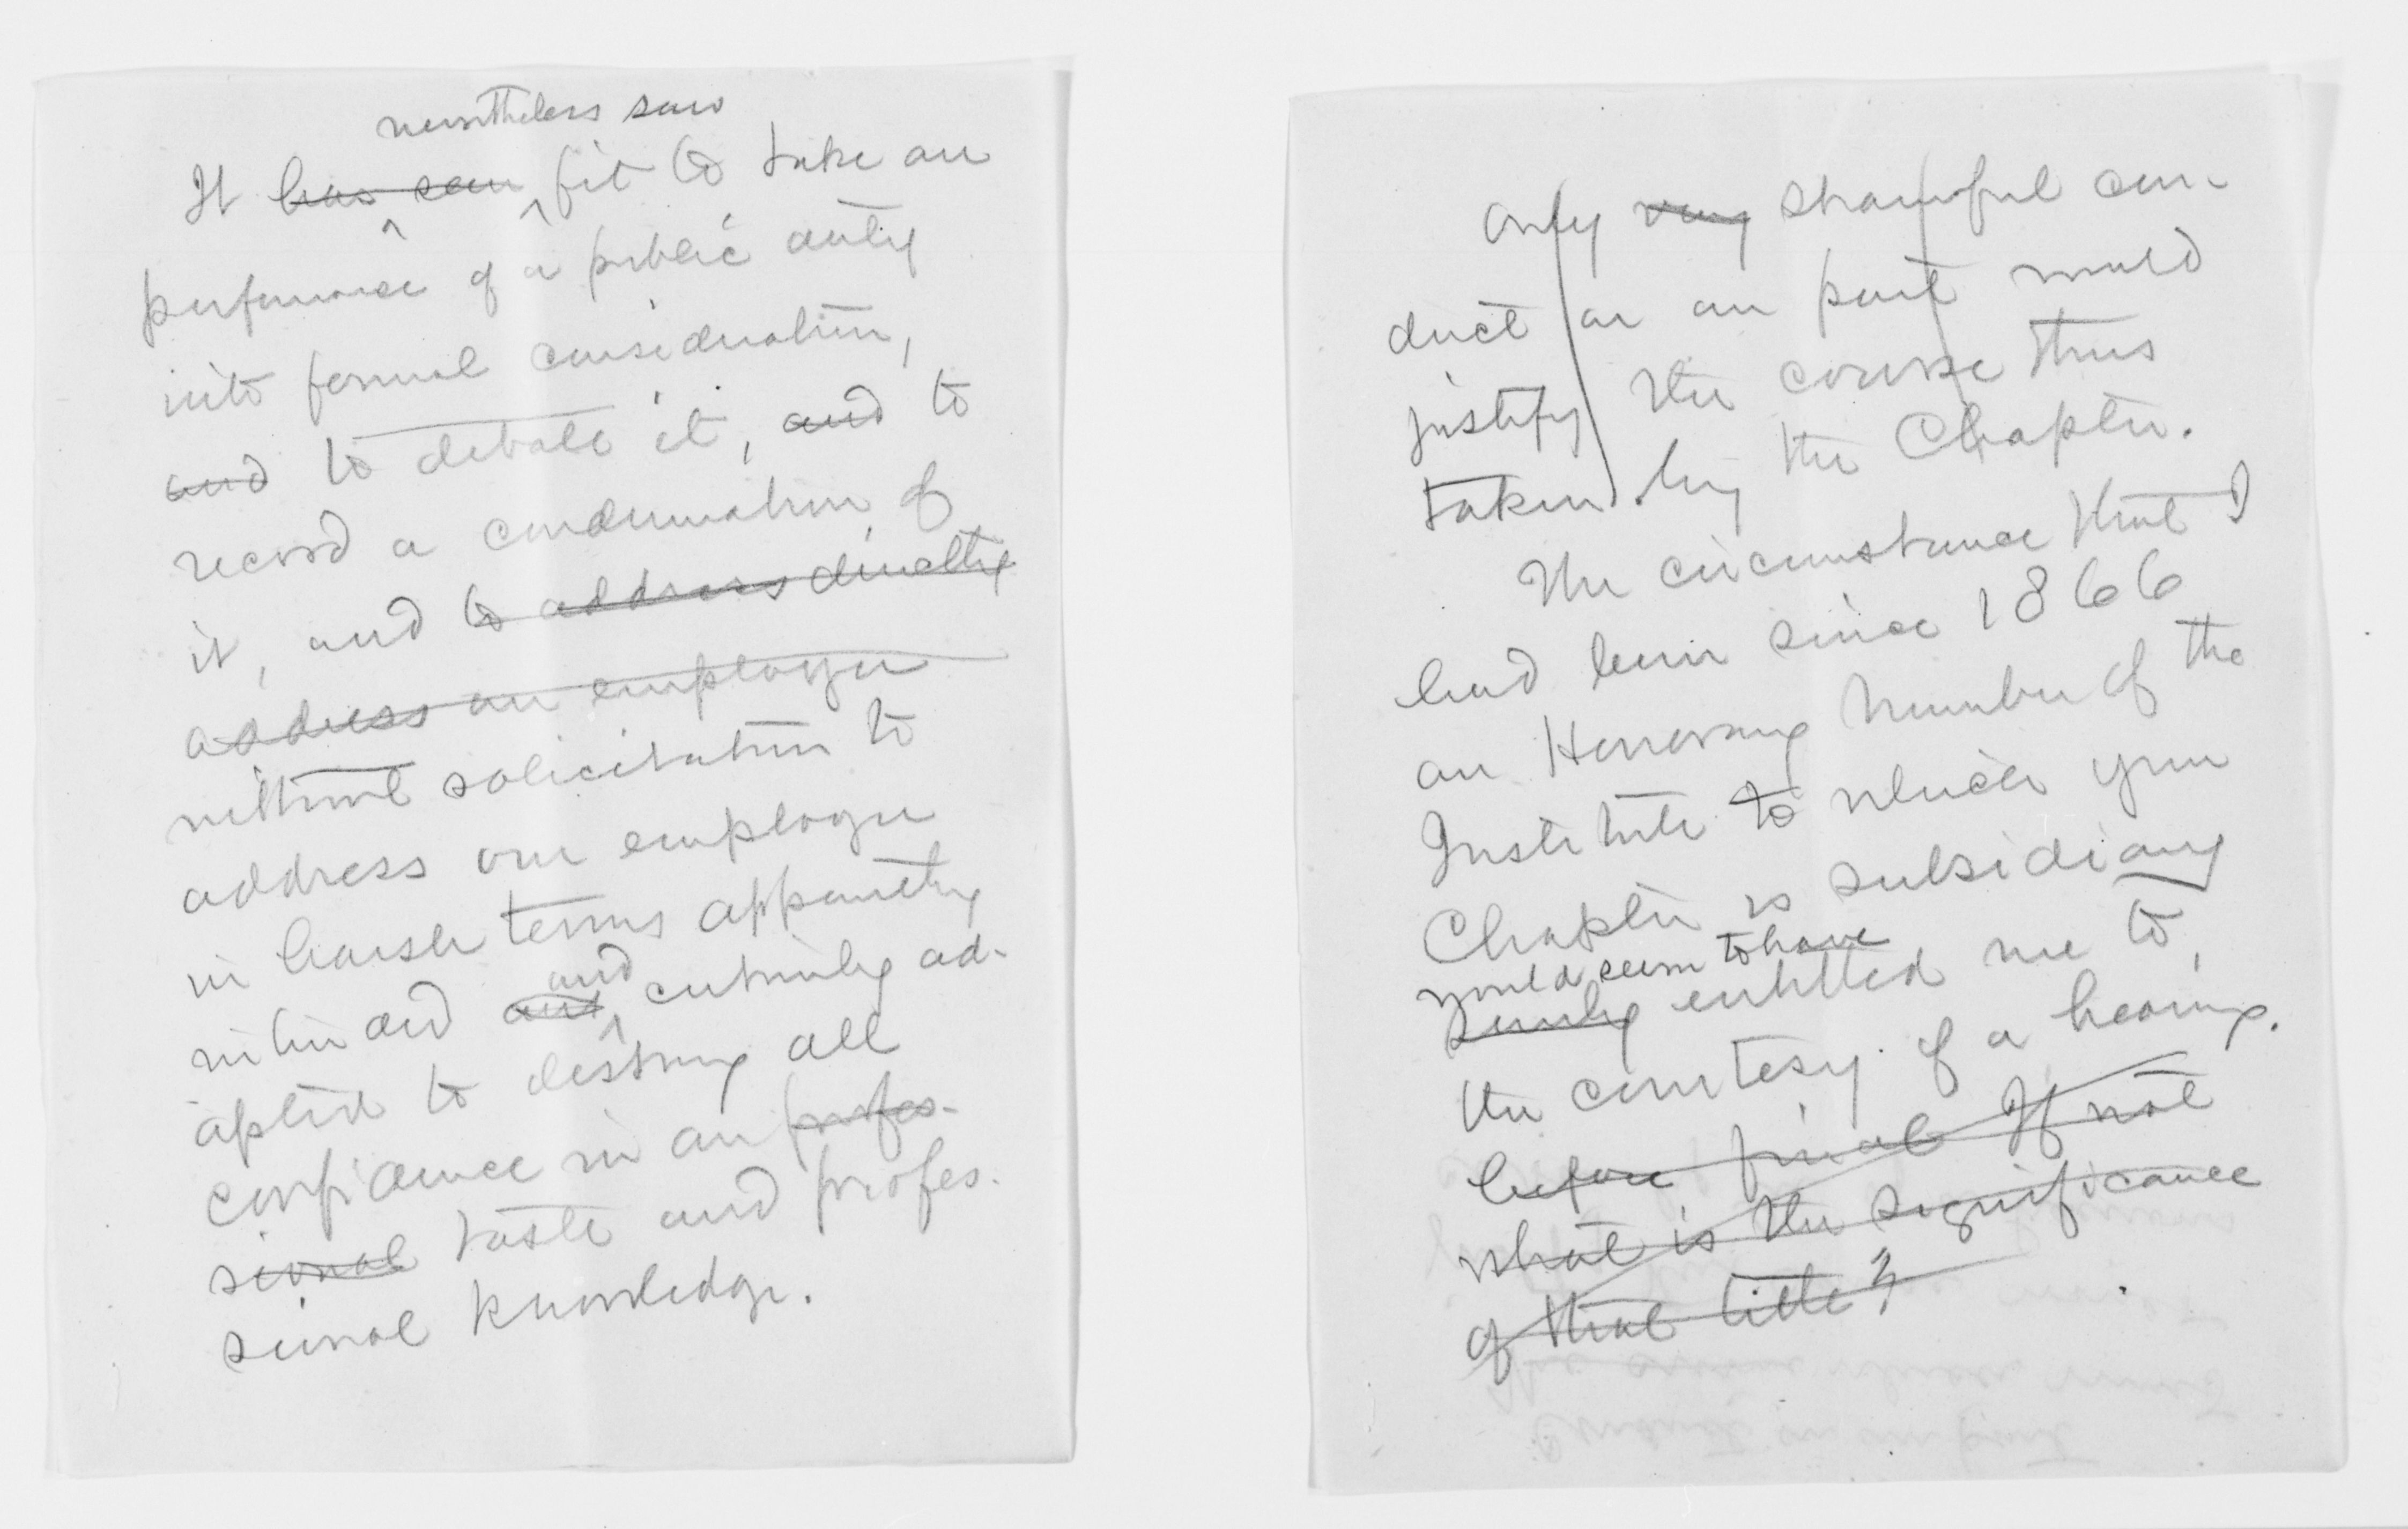 nevertheless saw
It has seen fit to take our
performance of a public duty
into formal consideration,
and to debate it, and to
record a condemnation of
it, and to address directly
address our employer
without solicitation to
address our employer
in harsh terms apparently
and
intended and certainly ad-
apted to destroy all
confidence in our profes-
sional taste and profes-
sional knowledge.
Only very shameful con-
duct on our part would
justify the course thus
taken by the Chapter.
The circumstance that I
had been since 1866
an Honorary Member of the
Institute to which your
Chapter is subsidiary
would seem to have
surely entitled me to
the courtesy of a hearing.
before final If not
what is the significance
of that title?